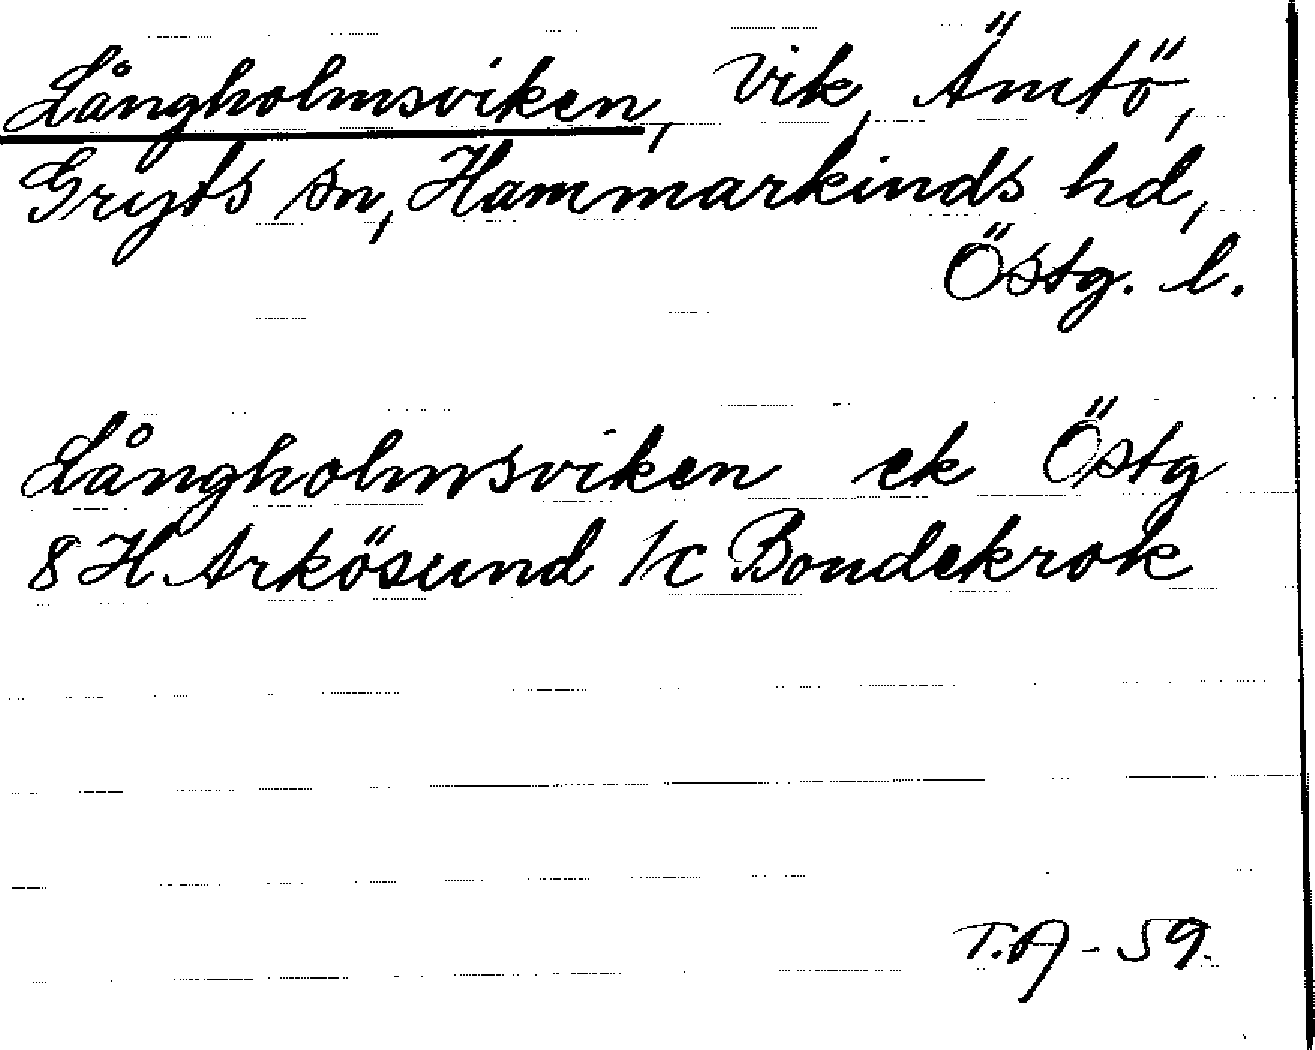 Långholmsviken, vik, Ämtö,
Gryts sn, Hammarkinds hd,
Östg. l.
Långholmsviken ek Östg
8 H Arkösund 1c Bondekrok
T.A - 59.